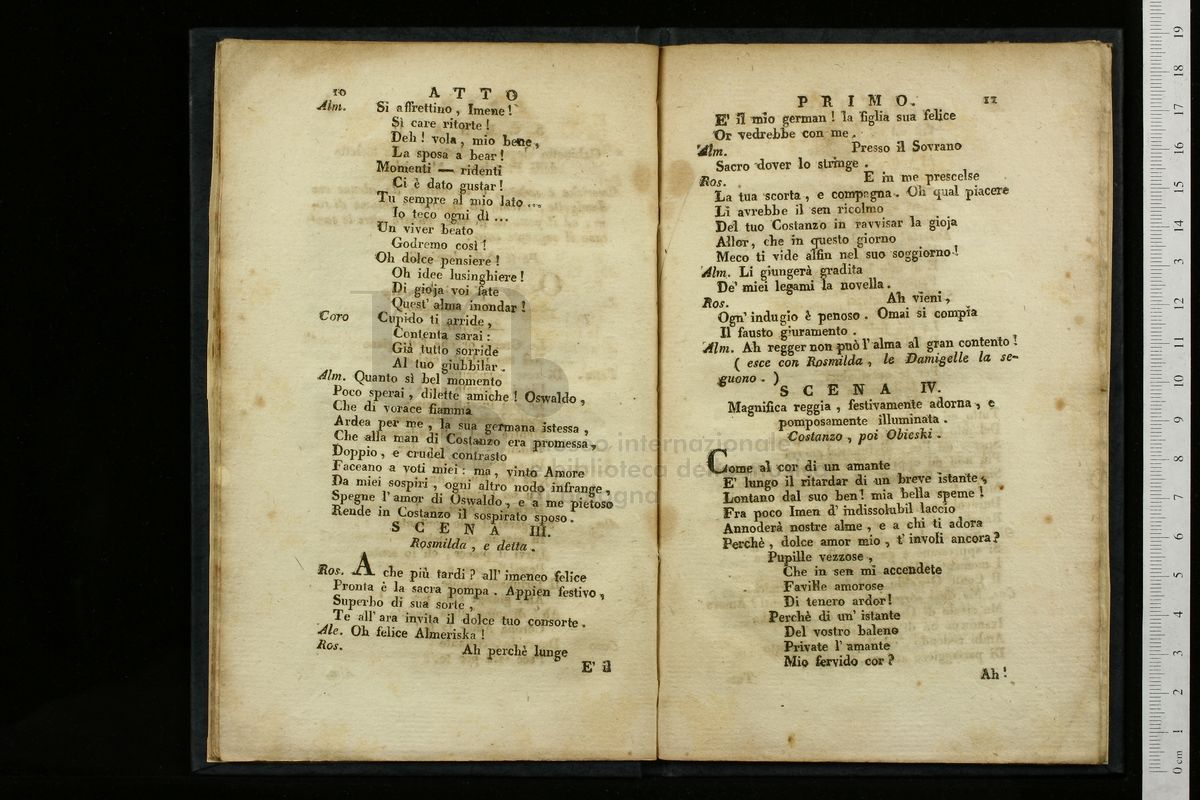 10 ATTO
Alm. Si affrettino, Imene!
Sì care ritorte!
Deh! vola, mio bene,
La sposa a bear!
Momenti — ridenti
Ci è dato gustar!
Tu sempre al mio lato...
Io teco ogni dì...
Un viver beato
Godremo così!
Oh dolce pensiere!
Oh idee lusinghiere!
Di gioja voi fate
Quest' alma inondar!
Coro Cupido ti arride,
Contenta sarai:
Già tutto sorride
Al tuo giubbilar.
Alm. Quanto sì bel momento
Poco sperai, dilette amiche! Oswaldo,
Che di vorace fiamma
Ardea per me, la sua germana istessa,
Che alla man di Costanzo era promessa,
Doppio, e crudel contrasto
Faceano a voti miei: ma, vinto Amore
Da miei sospiri, ogni altro nodo infrange,
Spegne l'amor di Oswaldo, e a me pietoso
Rende in Costanzo il sospirato sposo.
SCENA III.
Rosmilda, e detta.
Ros. A che più tardi? all' imeneo felice
Pronta è la sacra pompa. Appien festivo,
Superbo di sua sorte,
Te all' ara invita il dolce tuo consorte.
Ale. Oh felice Almeriska!
Ros. Ah perchè lunge
E' il
PRIMO. 11
E' il mio german! la figlia sua felice
Or vedrebbe con me.
Alm. Presso il Sovrano
Sacro dover lo stringe.
Ros. E in me prescelse
La tua scorta, e compagna. Oh qual piacere
Li avrebbe il sen ricolmo
Del tuo Costanzo in ravvisar la gioja
Allor, che in questo giorno
Meco ti vide alfin nel suo soggiorno!
Alm. Li giungerà gradita
De' miei legami la novella.
Ros. Ah vieni,
Ogn' indugio è penoso. Omai si compia
Il fausto giuramento.
Alm. Ah regger non può l'alma al gran contento!
( esce con Rosmilda, le Damigelle la se-
guono. )
SCENA IV.
Magnifica reggia, festivamente adorna, e
pomposamente illuminata.
Costanzo, poi Obieski.
Come al cor di un amante
E' lungo il ritardar di un breve istante,
Lontano dal suo ben! mia bella speme!
Fra poco Imen d' indissolubil laccio
Annoderà nostre alme, e a chi ti adora
Perchè, dolce amor mio, t' involi ancora?
Pupille vezzose,
Che in sen mi accendete
Faville amorose
Di tenero ardor!
Perchè di un' istante
Del vostro baleno
Private l' amante
Mio fervido cor?
Ah!